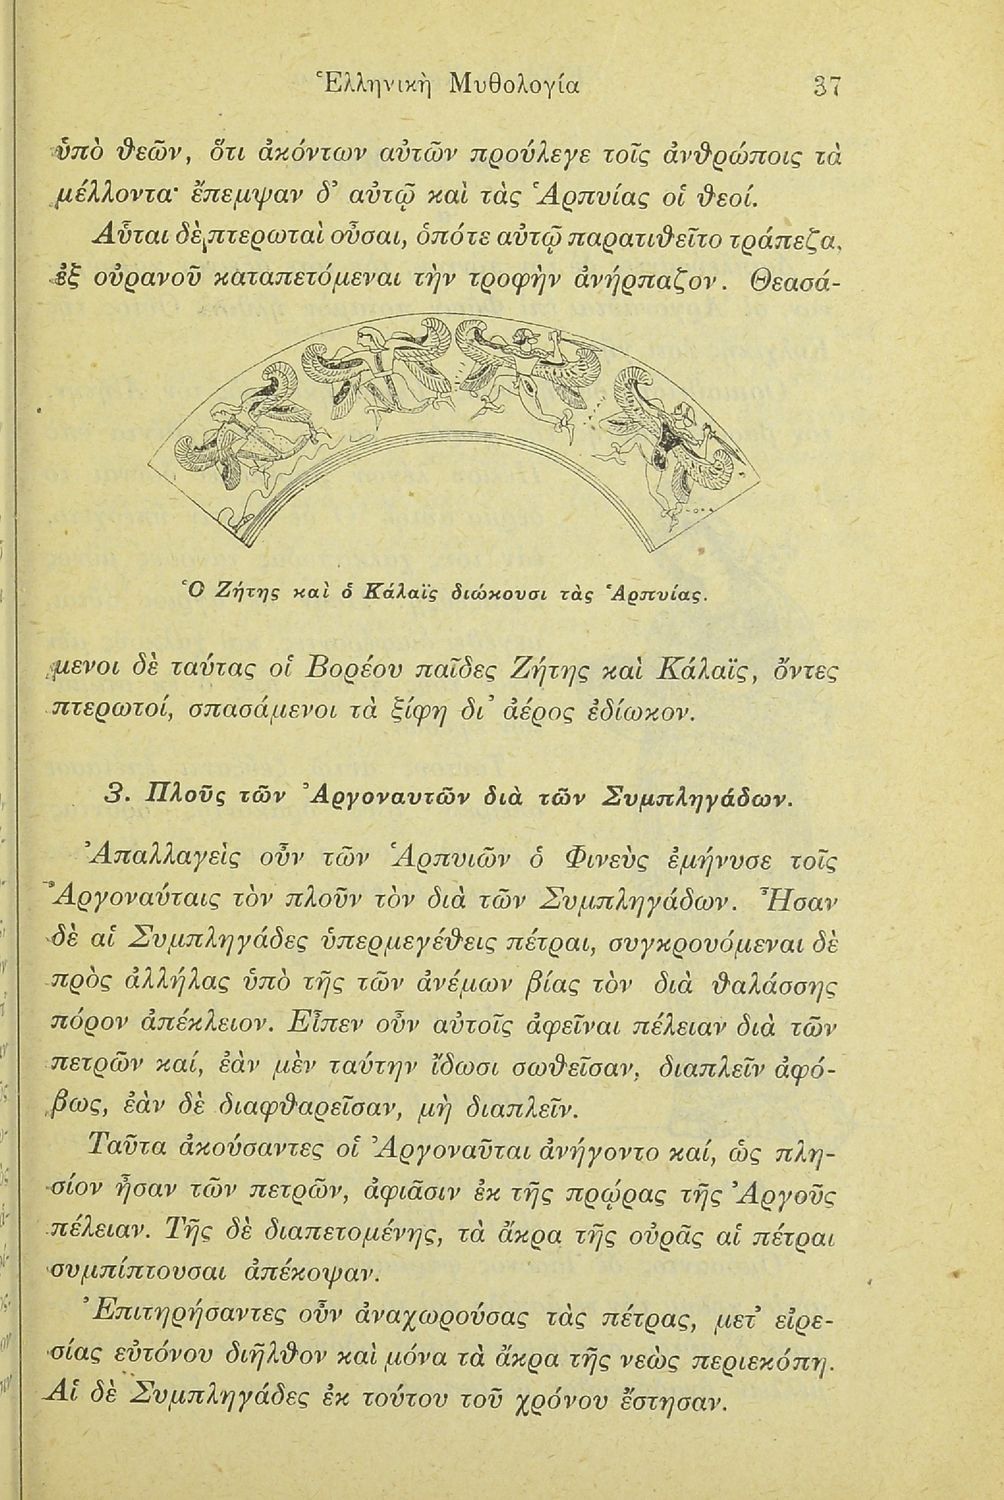 Ἑλληνικὴ Μυθολογία 37
ὑπὸ θεῶν, ὅτι ἀκόντων αὐτῶν προύλεγε τοῖς ἀνθρώποις τὰ
μέλλοντα· ἔπεμψαν δ’ αὐτῷ καὶ τὰς Ἁρπυίας οἱ θεοί.
Αὗται δὲ πτερωταὶ οὖσαι, ὁπότε αὐτῷ παρατιθεῖτο τράπεζα,
ἐξ οὐρανοῦ καταπετόμεναι τὴν τροφὴν ἀνήρπαζον. Θεασά-
Ὁ Ζήτης καὶ ὁ Κάλαϊς διώκουσι τὰς Ἁρπυίας.
μενοι δὲ ταύτας οἱ Βορέου παῖδες Ζήτης καὶ Κάλαϊς, ὄντες
πτερωτοί, σπασάμενοι τὰ ξίφη δι’ ἀέρος ἐδίωκον.
3. Πλοῦς τῶν Ἀργοναυτῶν διὰ τῶν Συμπληγάδων.
Ἀπαλλαγεὶς οὖν τῶν Ἁρπυιῶν ὁ Φινεὺς ἐμήνυσε τοῖς
Ἀργοναύταις τὸν πλοῦν τὸν διὰ τῶν Συμπληγάδων. Ἦσαν
δὲ αἱ Συμπληγάδες ὑπερμεγέθεις πέτραι, συγκρουόμεναι δὲ
πρὸς ἀλλήλας ὑπὸ τῆς τῶν ἀνέμων βίας τὸν διὰ θαλάσσης
πόρον ἀπέκλειον. Εἶπεν οὖν αὐτοῖς ἀφεῖναι πέλειαν διὰ τῶν
πετρῶν καί, ἐὰν μὲν ταύτην ἴδωσι σωθεῖσαν, διαπλεῖν ἀφό-
βως, ἐὰν δὲ διαφθαρεῖσαν, μὴ διαπλεῖν.
Ταῦτα ἀκούσαντες οἱ Ἀργοναῦται ἀνήγοντο καί, ὡς πλη-
σίον ἦσαν τῶν πετρῶν, ἀφιᾶσιν ἐκ τῆς πρῴρας τῆς Ἀργοῦς
πέλειαν. Τῆς δὲ διαπετομένης, τὰ ἄκρα τῆς οὐρᾶς αἱ πέτραι
συμπίπτουσαι ἀπέκοψαν.
Ἐπιτηρήσαντες οὖν ἀναχωρούσας τὰς πέτρας, μετ’ εἰρε-
σίας εὐτόνου διῆλθον καὶ μόνα τὰ ἄκρα τῆς νεὼς περιεκόπη.
Αἱ δὲ Συμπληγάδες ἐκ τούτου τοῦ χρόνου ἔστησαν.